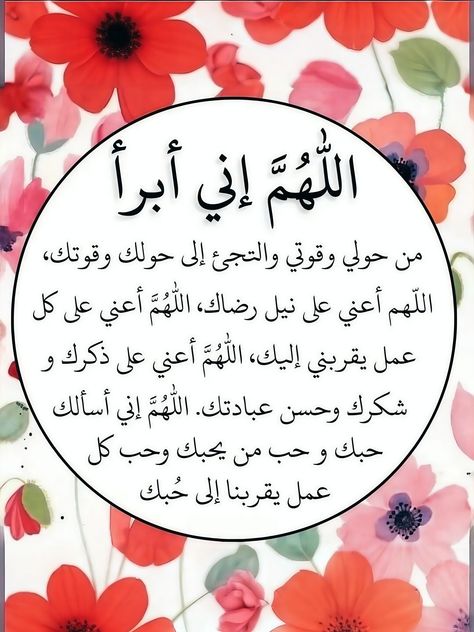 اللّٰهُمَّ إني أبرأ
من حولي وقوتي والتجئ إلى حولك وقوتك،
اللّهم أعني على نيل رضاك، اللّٰهُمَّ أعني على كل
عمل يقربني إليك، اللّٰهُمَّ أعني على ذكرك و
شكرك وحسن عبادتك. اللّٰهُمَّ إني أسألك
حبك و حب من يحبك وحب كل
عمل يقربنا إلى حُبك